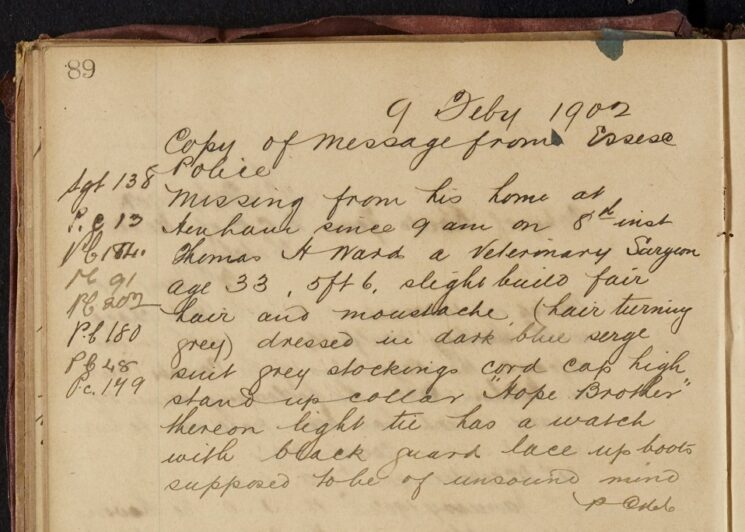 89
9 Feby 1902
Copy of Message from Essex
Police
Missing from his home at
Henham since 9 am on 8th inst
Thomas H Ward a Veterinary Surgeon
age 33, 5ft 6, slight build fair
hair and moustache, (hair turning
grey) dressed in dark blue serge
suit grey stockings cord cap high
stand up collar "Hope Brother"
thereon light tie has a watch
with black guard lace up boots
supposed to be of unsound mind
Sgt 138
P.C 13
PC 184.
PC 91
PC 202
P.C 180
PC 48
P.c. 149